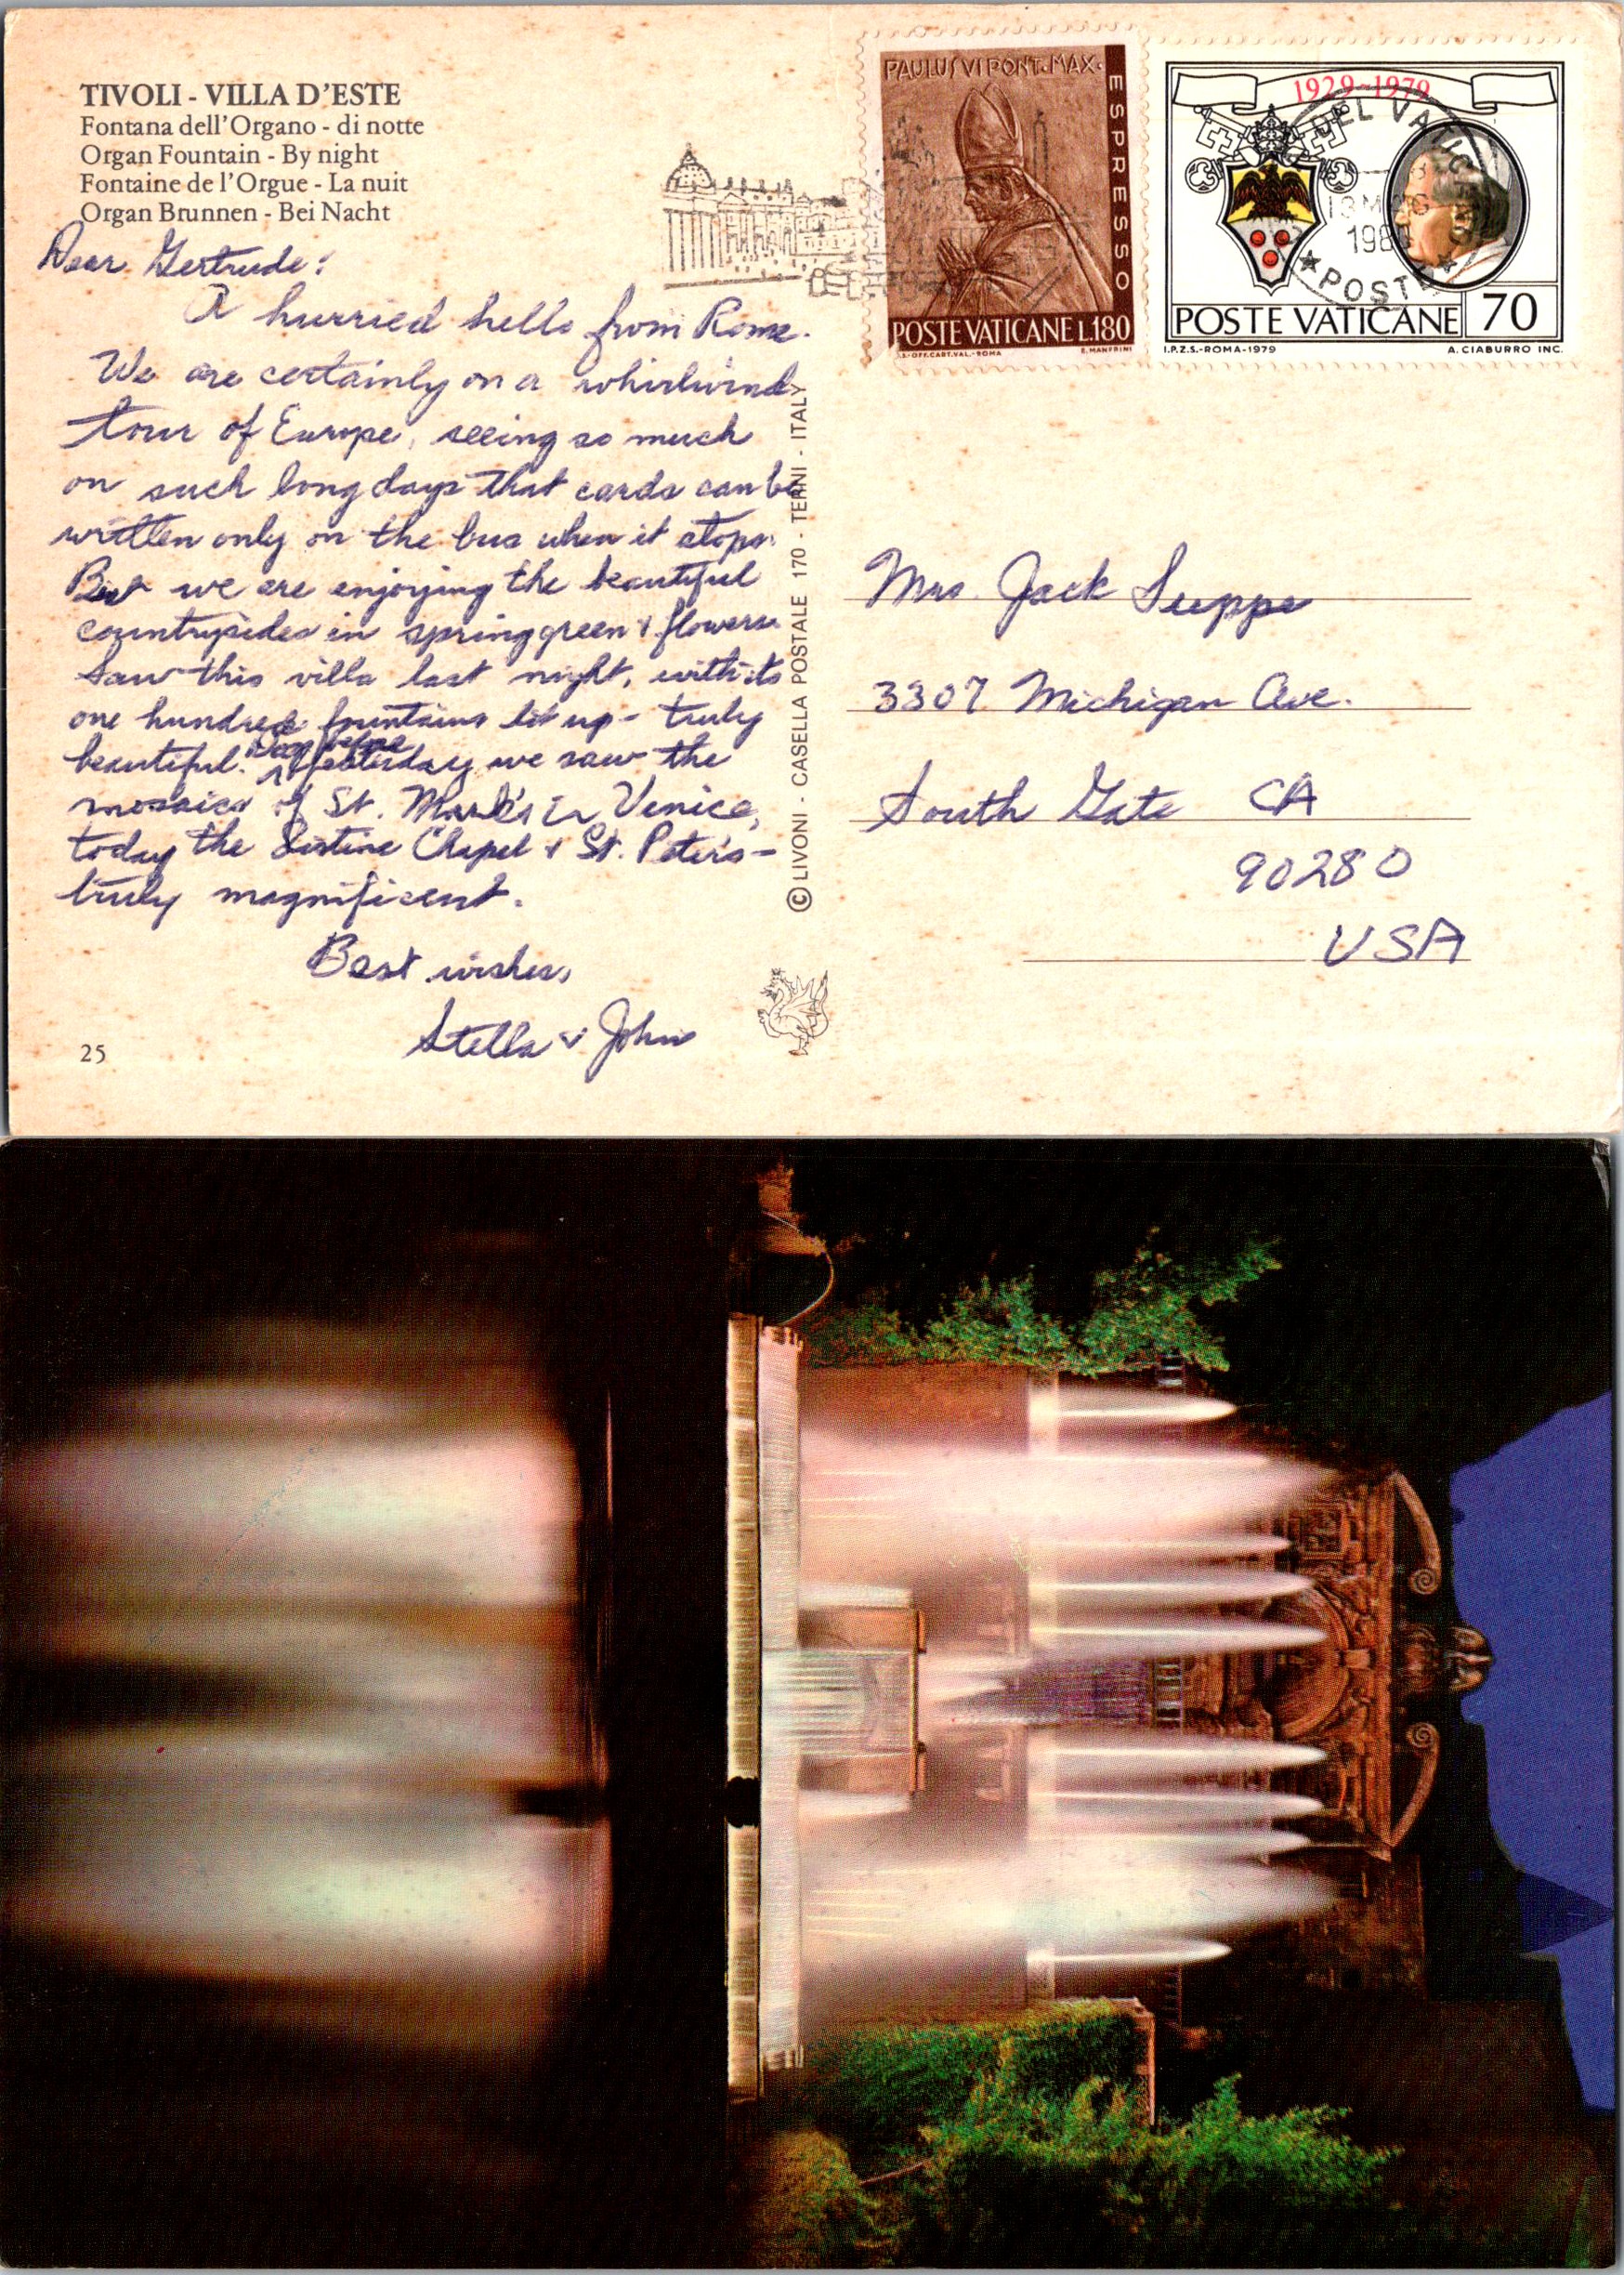 TIVOLI - VILLA D'ESTE
Fontana dell'Organo - di notte
Organ Fountain - By night
Fontaine de l'Orgue - La nuit
Organ Brunnen - Bei Nacht
Dear Gertrude:
A hurried hello from Rome.
We are certainly on a whirlwind
tour of Europe, seeing so much
on such long days that cards can be
written only on the bus when it stops.
But we are enjoying the beautiful
countrysides in spring green & flowers.
Saw this villa last night, with its
one hundred fountains lit up - truly
beautiful. Day before yesterday we saw the
mosaics of St. Mark's in Venice,
today the Sistine Chapel & St. Peter's -
truly magnificent.
Best wishes,
Stella & John
25
© LIVONI - CASELLA POSTALE 170 - TERNI - ITALY
PAULUS VI PONT. MAX.
ESPRESSO
POSTE VATICANE L.180
I.S.-OFF.CART.VAL.-ROMA
E. MANFRINI
1929-1979
POSTE VATICANE 70
I.P.Z.S.-ROMA-1979
A. CIABURRO INC.
POSTE
Mrs. Jack Suppe
3307 Michigan Ave.
South Gate CA
90280
USA